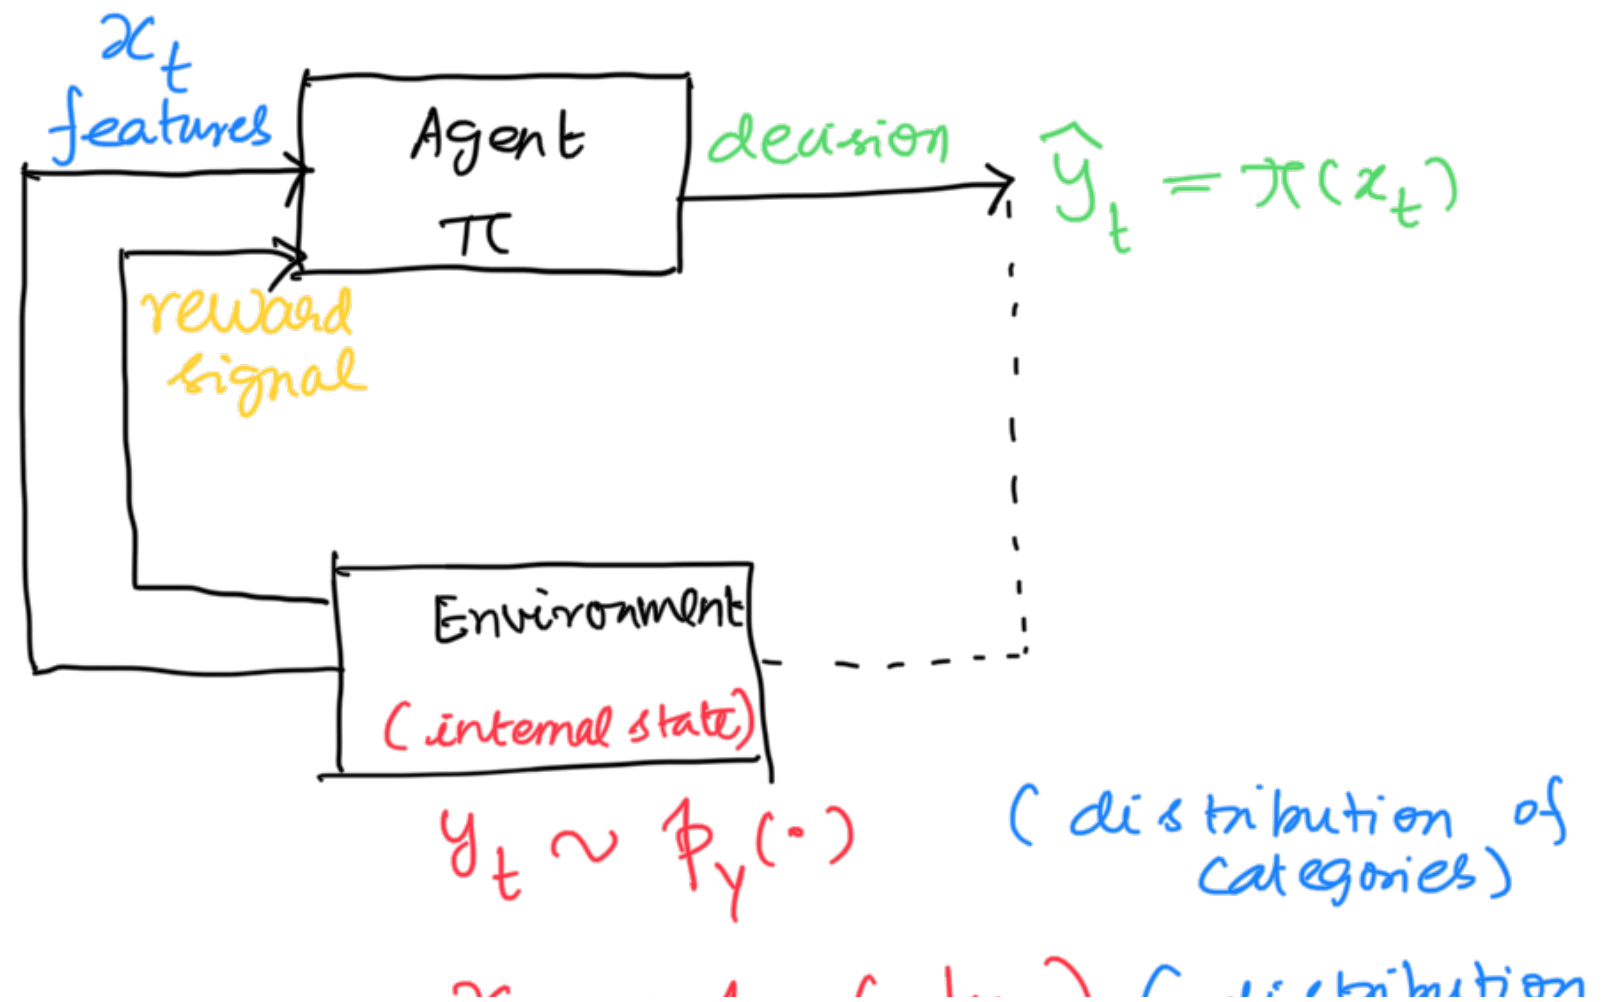 x_t
features
Agent
π
decision
ŷ_t = π(x_t)
reward
signal
Environment
(internal state)
y_t ~ p_Y(·)
(distribution of
categories)
(distribution